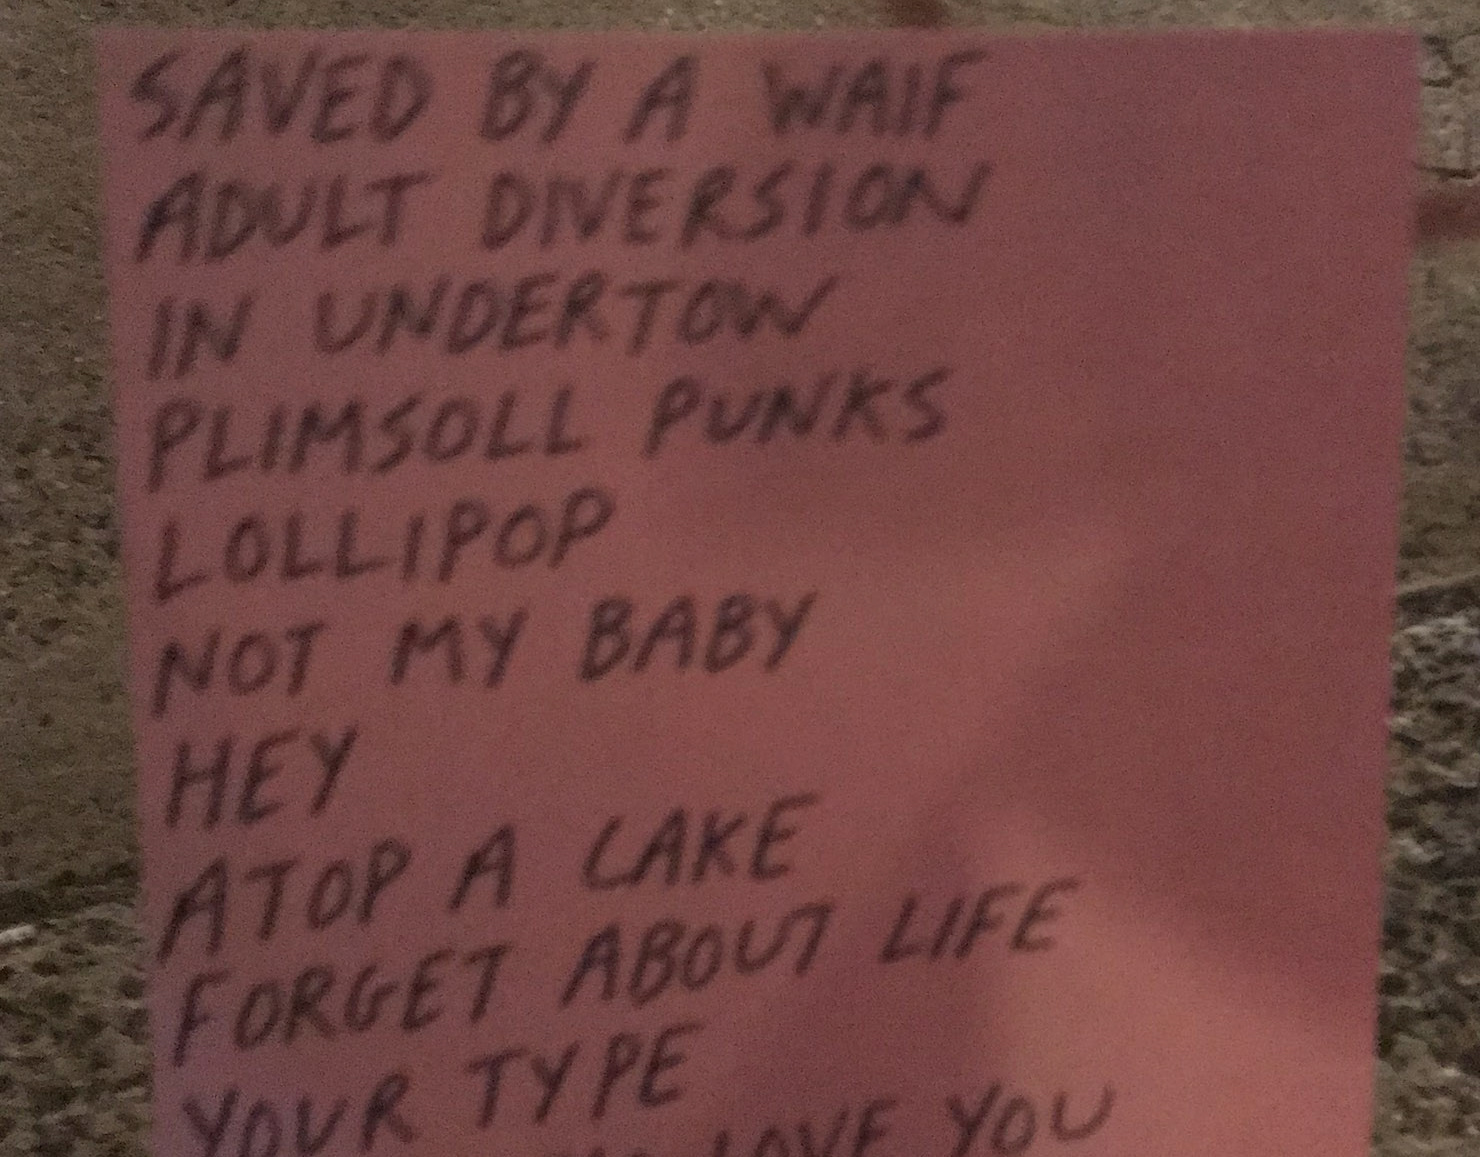 SAVED BY A WAIF
ADULT DIVERSION
IN UNDERTOW
PLIMSOLL PUNKS
LOLLIPOP
NOT MY BABY
HEY
ATOP A CAKE
FORGET ABOUT LIFE
YOUR TYPE
LOVE YOU